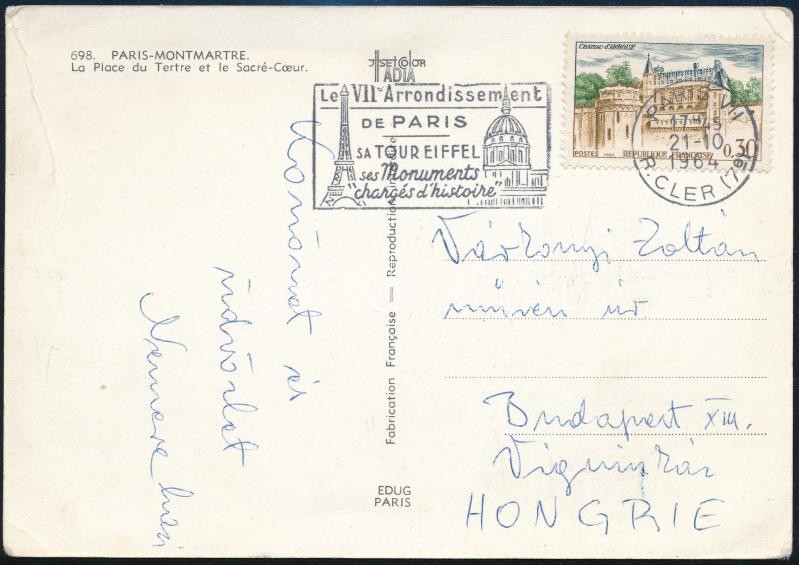 698. PARIS-MONTMARTRE.
La Place du Tertre et le Sacré-Cœur.
Le VIIᵉ Arrondissement
DE PARIS
SA TOUR EIFFEL
ses Monuments
"chargés d'histoire"
CHATEAU d'AMBOISE
POSTES
REPUBLIQUE FRANÇAISE
0,30
PARIS VII
17H45
21-10
1964
R.CLER (7e)
és
üdvözlet
Várkonyi Zoltán
művész úr
Budapest XIII.
Vígszínház
HONGRIE
Fabrication Française — Reproduction
EDUG
PARIS